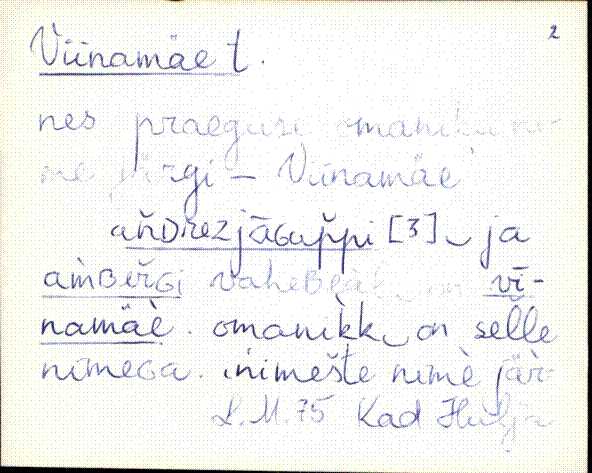 2
Viinamäe t.
nes praeguse omaniku ni-
me järgi – Viinamäe
an̆Drez jāGup̆pi [3] ja
am̀BerGi vaheBeàl on vī-
namäè. omanik̀k on selle
nimeGa. inimešte nimè jär-
L.M. 75 Kad Hulja